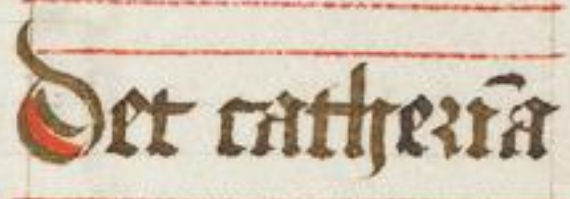 Det catherīa